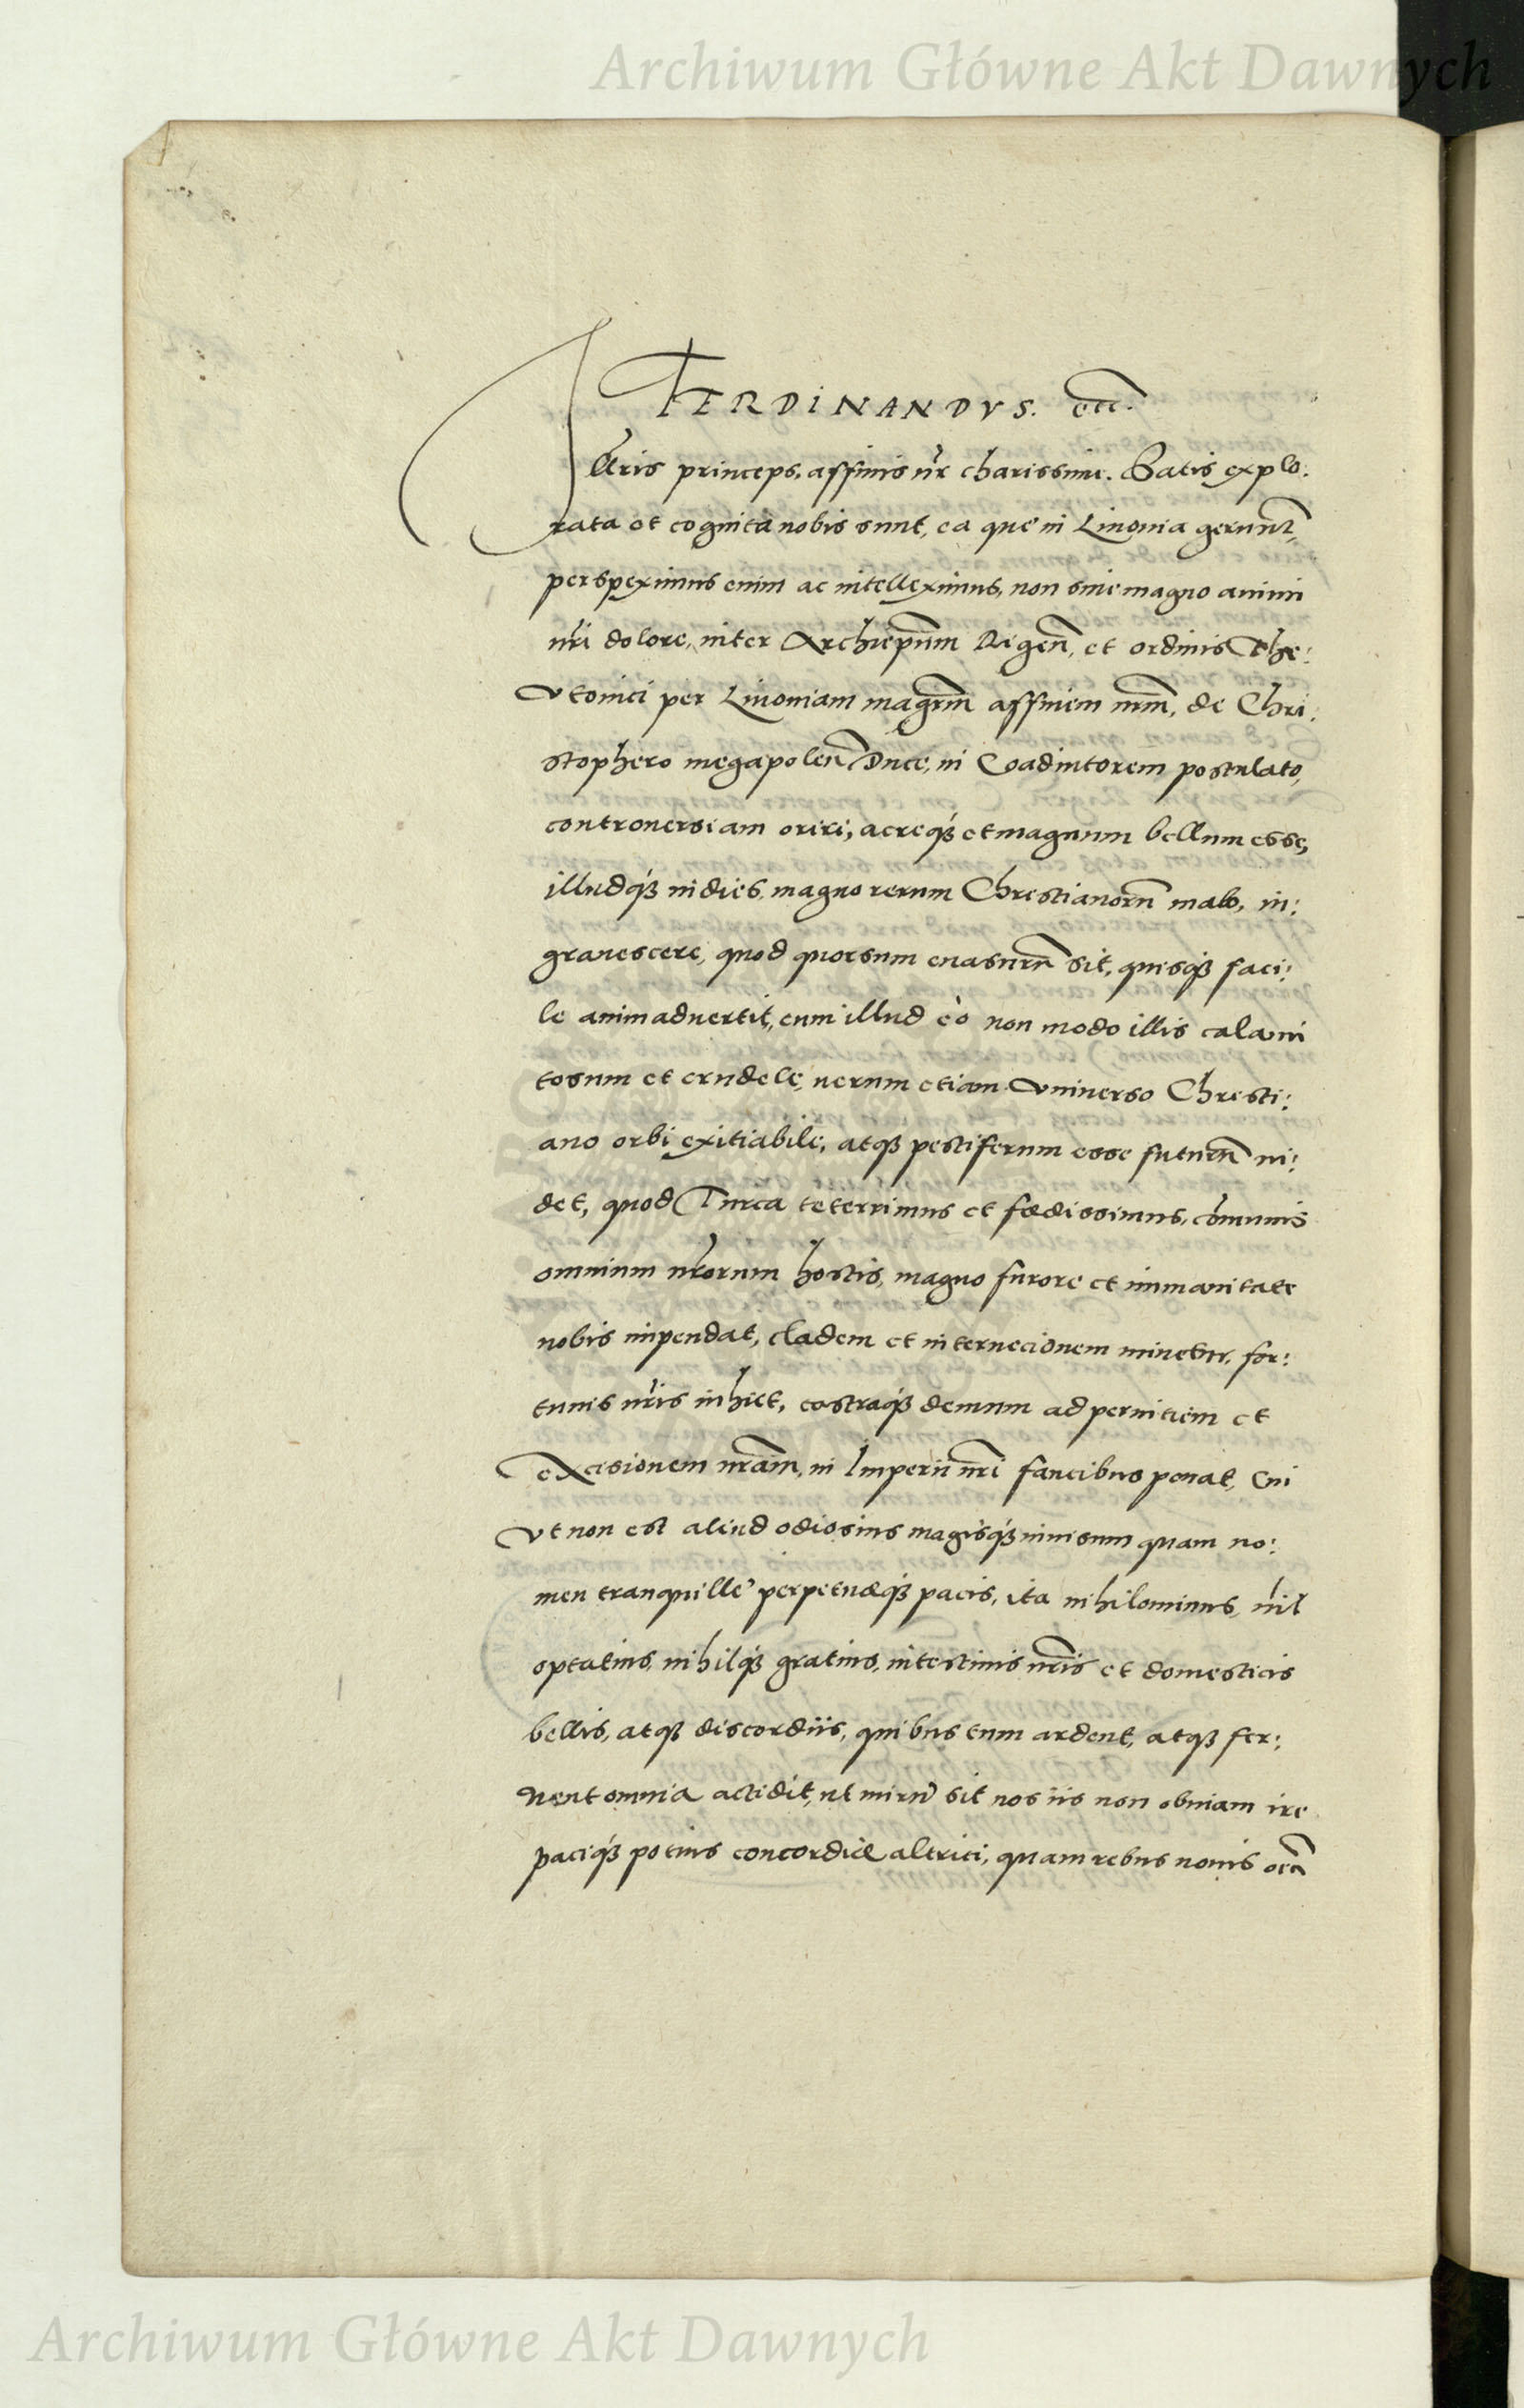 Archiwum Główne Akt Dawnych
FERDINANDVS. etc.
Illris princeps, affinis nr̃ charissime. Satis explo:
rata et cognita nobis sunt, ea que in Liuonia gerunt̃,
perspeximus enim ac intelleximus, non sine magno animi
nr̃i dolore, inter Archiepũm Rigeñ, et ordinis The:
vtonici per Liuoniam magrm̃ affinem nrm̃, de Chri:
stophero megapoleñ Duce, in Coadiutorem postulato,
controuersiam oriri, acreq́ꝫ et magnum bellum esse,
illudq́ꝫ in dies, magno rerum Chrestianorũ malo, in:
grauescere, quod quorsum euasurũ sit, quisq́ꝫ faci:
le animaduertit, cum illud eò non modo illis calami
tosum et crudele, uerum etiam vniuerso Chresti:
ano orbi exitiabile, atqꝫ pestiferum esse futurũ ui:
det, quod Turca teterrimus et fœdissimus, cõmunis
omnium nr̃orum hostis, magno furore et immanitate
nobis impendat, cladem et internecionem minetur, for:
tunis nr̃is inhiet, castraq́ꝫ demum ad pernitiem et
excisionem nr̃am, in Imperii nr̃i faucibus ponat, Cui
vt non est aliud odiosius magisq́ꝫ inuisum quam no:
men tranquille perpetuæq́ꝫ pacis, ita nihilominus, nil
optatius, nihilq́ꝫ gratius, intestinis nr̃is et domesticis
bellis, atqꝫ discordiis, quibus tum ardent, atqꝫ fer:
uent omnia accidit, ut mirũ sit nos iis non obuiam ire
paciq́ꝫ potius concordiæ altrici, quam rebus nouis
Archiwum Główne Akt Dawnych